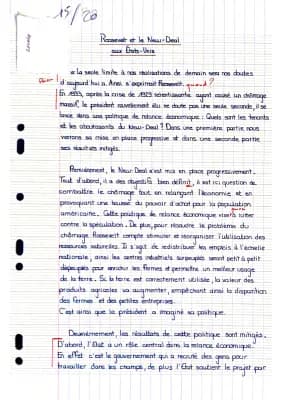 15/20
Roosevelt et le New-Deal
aux États-Unis
« La seule limite à nos réalisations de demain sera nos doutes
d'aujourd'hui ». Ainsi s'exprimait Roosevelt. quand ?
En 1933, après la crise de 1929 ayant causé un chômage
massif, le président nouvellement élu ne doute pas une seule seconde, il se
lance dans une politique de relance économique : Quels sont les tenants
et les aboutissants du New-Deal ? Dans une première partie, nous
verrons sa mise en place progressive et dans une seconde partie
ses résultats mitigés.
Premièrement, le New Deal s'est mis en place progressivement.
Tout d'abord, il a des objectifs bien définit, il est ici question de
combattre le chômage tout en relançant l'économie et en
provoquant une hausse du pouvoir d'achat pour la population
américaine. Cette politique de relance économique vise lutter
contre la spéculation. De plus, pour résoudre le problème du
chômage Roosevelt compte stimuler et réorganiser l'utilisation des
ressources naturelles. Il s'agit de redistribuer les emplois à l'échelle
nationale, ainsi les centres industriels surpeuplés seront petit à petit
dépeuplés pour enrichir les fermes et permettre un meilleur usage
de la terre. Si la terre est correctement utilisée, la valeur des
produits agricoles va augmenter, empêchant ainsi la disparition
des fermes et des petites entreprises.
C'est ainsi que le président a imaginé sa politique.
Deuxièmement, les résultats de cette politique sont mitigés.
D'abord, l'État a un rôle central dans la relance économique.
En effet c'est le gouvernement qui a recruté des gens pour
travailler dans les champs, de plus l'État soutient le projet par